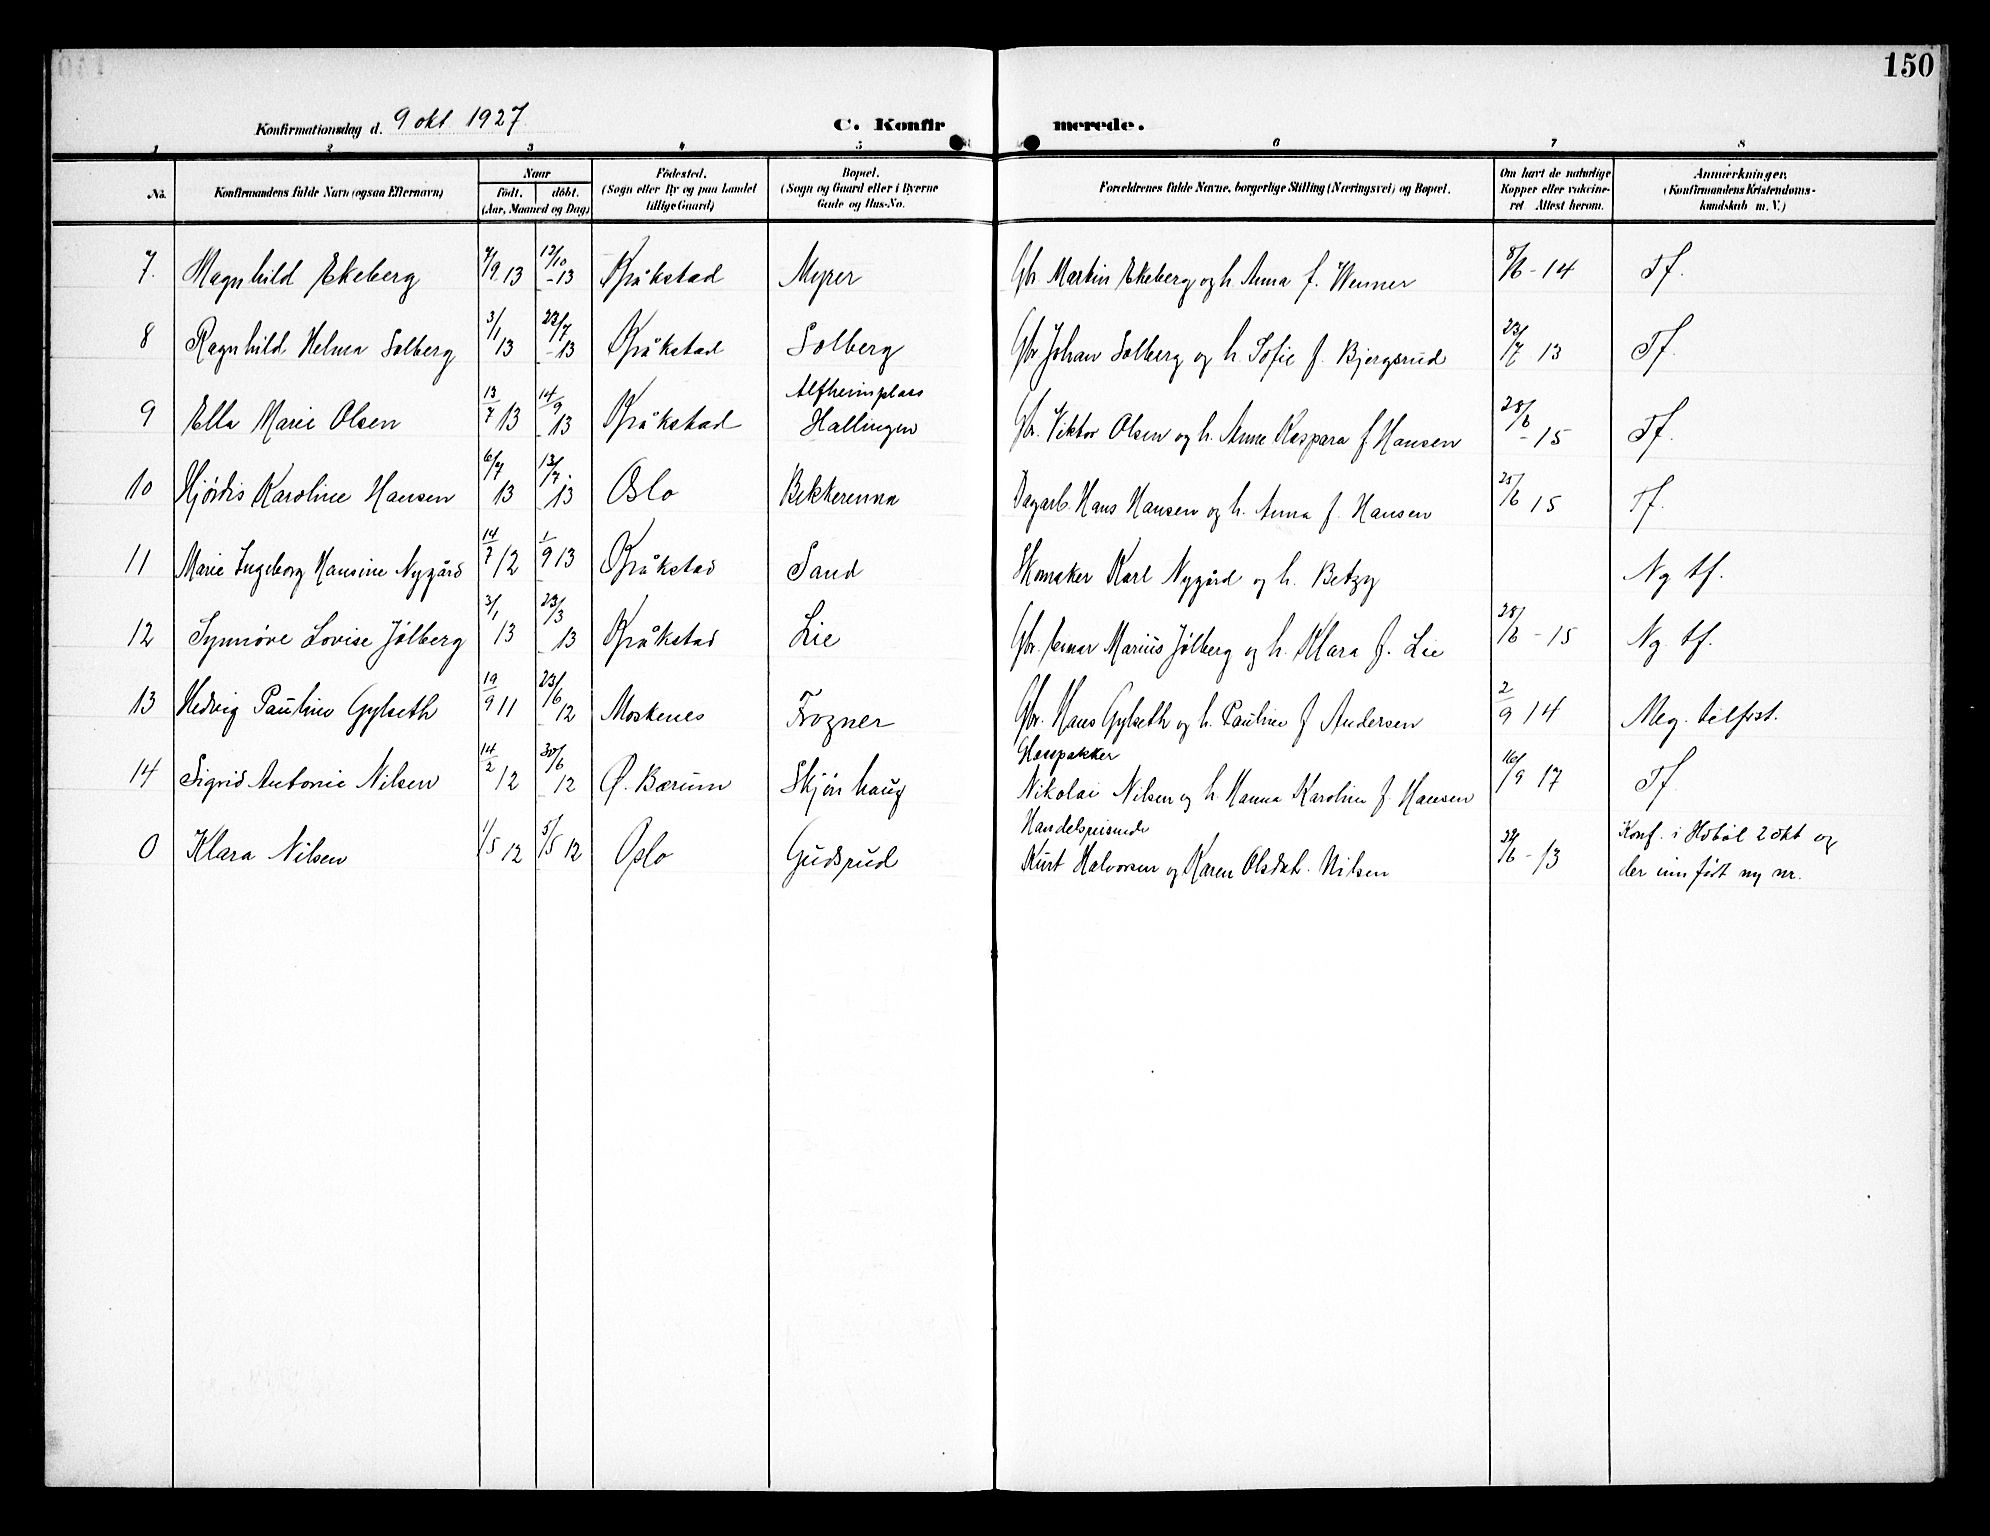 150
Konfirmationsdag d. 9 okt 1927
C. Konfirmerede.
1 2 3 4 5 6 7 8
No. Konfirmandens fulde Navn (ogsaa Efternavn) Naar födt. döbt. (Aar, Maaned og Dag) Födested. (Sogn eller By og paa Landet tillige Gaard) Bopæl. (Sogn og Gaard eller i Byerne Gade og Hus-No. Forældrenes fulde Navne, borgerlige Stilling (Næringsvei) og Bopæl. Om havt de naturlige Kopper eller vaccineret Attest herom. Anmærkninger. (Konfirmandens Kristendomskundskab m. V.)
7. Magnhild Ekeberg 7/9 13 12/10 -13 Kråkstad Myrer Gbr Martin Ekeberg og h. Anna f. Wenner 8/6 - 14 Tf.
8 Ragnhild Helma Solberg 3/1 13 23/7 -13 Kråkstad Solberg Gbr Johan Solberg og h. Sofie f. Bjergsrud 23/7 13 Tf.
9 Ella Marie Olsen 13/7 13 14/9 -13 Kråkstad Alfheimplass Hallingen Gbr. Viktor Olsen og h. Anne Kaspara f Hansen 28/6 - 15 Tf.
10 Hjørdis Karoline Hansen 6/7 13 13/7 -13 Oslo Bekkerenna Dagarb. Hans Hansen og h. Anna f. Hansen 25/6 15 Tf.
11 Marie Ingeborg Hansine Nygård 14/7 12 1/9 13 Kråkstad Sand Skomaker Karl Nygård og h. Betzy Ng tf.
12 Synnøve Lovise Jølberg 3/1 13 23/3 -13 Kråkstad Lie Gbr. Marius Jølberg og h. Klara f. Lie 28/6 - 15 Ng. tf.
13 Hedvig Pauline Gylseth 19/9 11 23/6 -12 Moskenes Frogner Gbr. Hans Gylseth og h. Pauline f Andersen 2/9 14 Meg. tilfrst.
14 Sigrid Antonie Nilsen 14/2 12 30/6 12 Ø. Bærum Skjønhaug Glasspakker Nikolai Nilsen og h. Hanna Karoline f. Hansen 16/9 17 Tf
0 Klara Nilsen 1/5 12 5/5 12 Oslo Gudsrud Handelsreisende Kurt Halvorsen og Karen Olsdtr. Nilsen /6 - 13 Konf. i Hobøl 2 okt og
der innført ny nr.